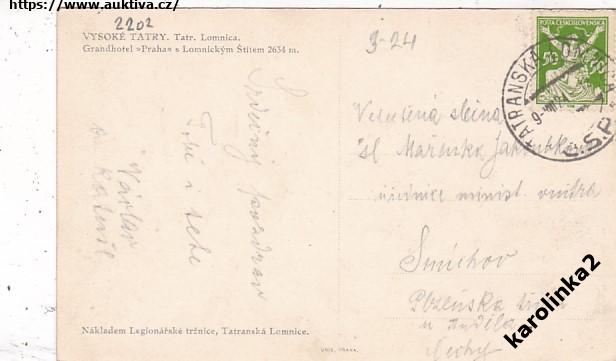 https://www.auktiva.cz/
2202
VYSOKÉ TATRY. Tatr. Lomnica.
Grandhotel »Praha« s Lomnickým Štítem 2634 m.
3-24
POŠTA ČESKOSLOVENSKÁ
50
TATRANSKÁ LOMNICA
Č.S.P.
Srdečný pozdrav
Tvé i sebe
Václav
Velectěná slečna
sl Mařenka
úřednice minist. vnitra
Smíchov
Plzeňská
u Anděla
Čechy
Nákladem Legionářské tržnice, Tatranská Lomnice.
UNIE, PRAHA.
karolinka2